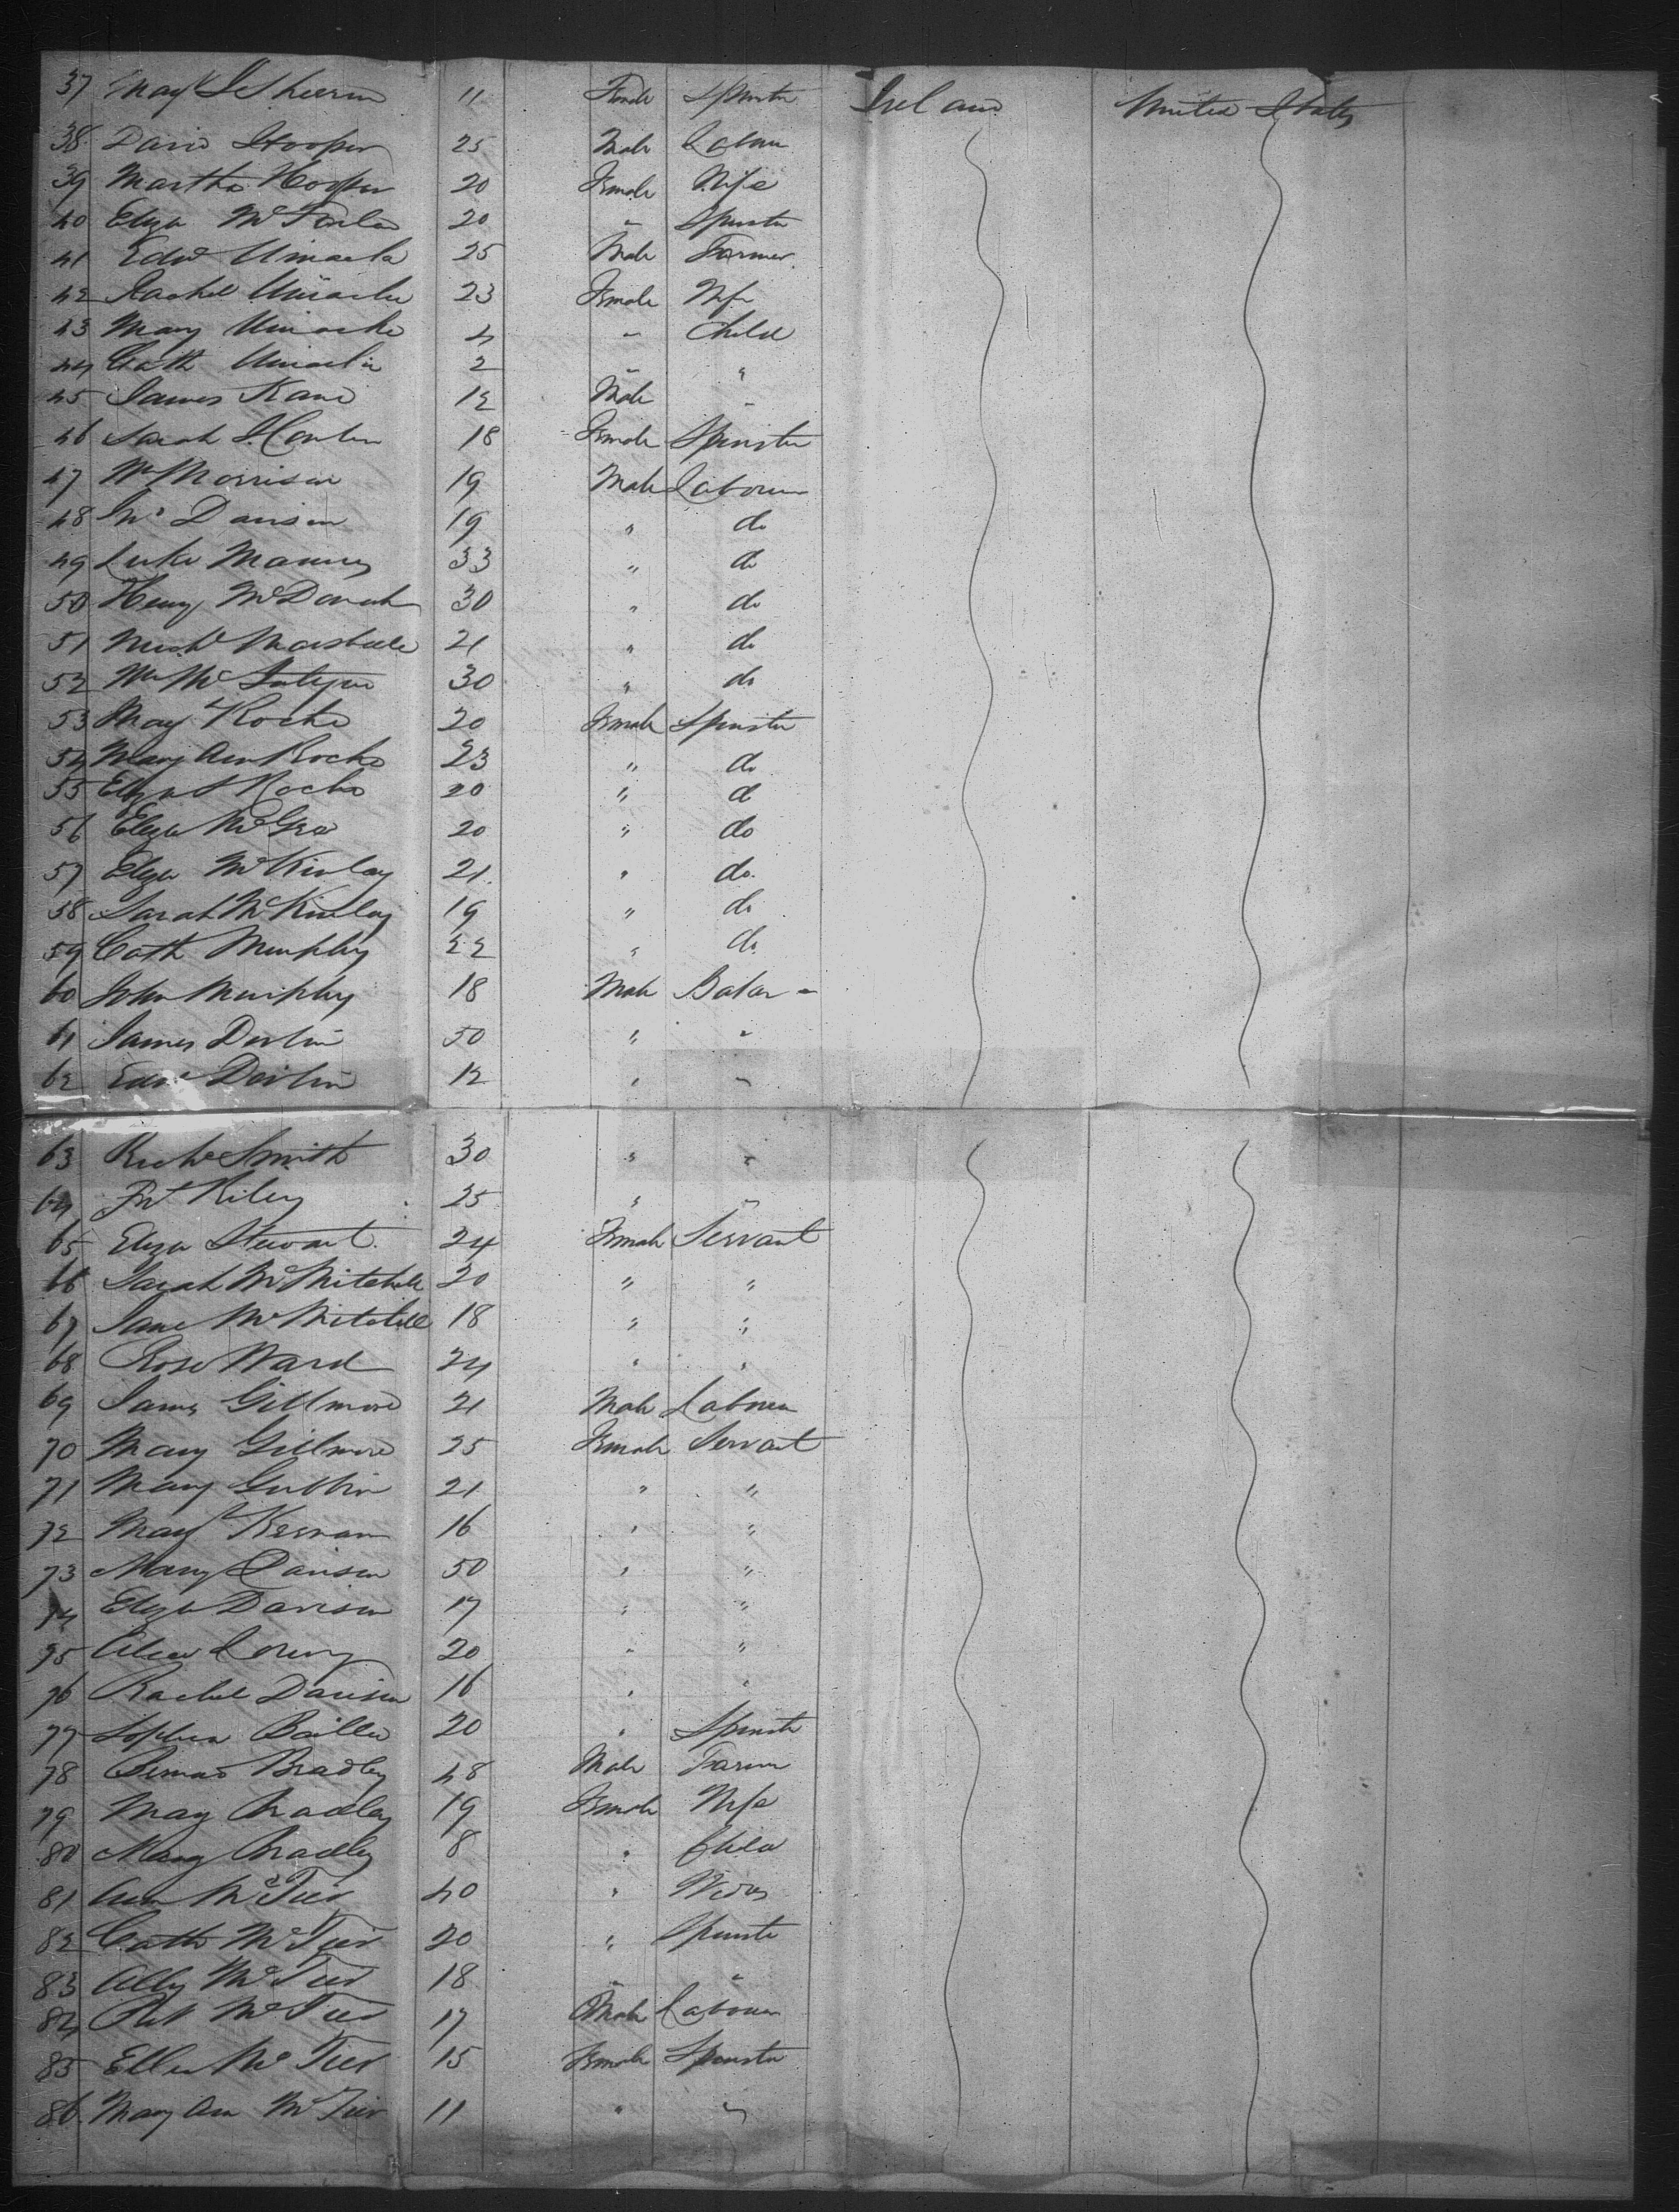 37 Mary Sheerin 11 Female Spinster Ireland United States
38 David Hooper 25 Male Labour
39 Martha Hooper 20 Female Wife
40 Eliza 20 " Spinster
41 Edwd 25 Male Farmer
42 Rachel 23 Female Wife
43 Mary 4 " Child
44 Cath 2 " "
45 James Kane 12 Male "
46 Sarah 18 Female Spinster
47 Wm Morrison 19 Male Labourer
48 Jno Davison 19 " do
49 Luke 33 " do
50 Henry 30 " do
51 21 " do
52 Wm 30 " do
53 Mary Roche 20 Female Spinster
54 Mary Ann Roche 23 " do
55 Eliza Roche 20 " do
56 Eliza McGra 20 " do
57 Eliza McKinlay 21 " do
58 Sarah McKinlay 19 " do
59 Cath Murphy 22 " do
60 John Murphy 18 Male "
61 James Devlin 50 " "
62 Edwd Devlin 12 " "
63 Richd Smith 30 " "
64 Pat Riley 25 " "
65 Eliza Stewart 24 Female Servant
66 Sarah McMitchell 20 " "
67 Jane McMitchell 18 " "
68 Rose Ward 24 " "
69 James Gillmore 21 Male Labourer
70 Mary Gillmore 25 Female Servant
71 Mary 21 " "
72 Mary 16 " "
73 Mary Davison 50 " "
74 Eliza Davison 17 " "
75 20 " "
76 Rachel Davison 16 " "
77 Sophia Baillie 20 " Spinster
78 Bernad Bradley 48 Male Farmer
79 Mary Bradley 19 Female Wife
80 Mary Bradley 8 " Child
81 Ann McTier 40 " Widow
82 Cath McTier 20 " Spinster
83 Ally McTier 18 " "
84 McTier 17 Male Labourer
85 Ellen McTier 15 Female Spinster
86 Mary Ann McTier 11 " "